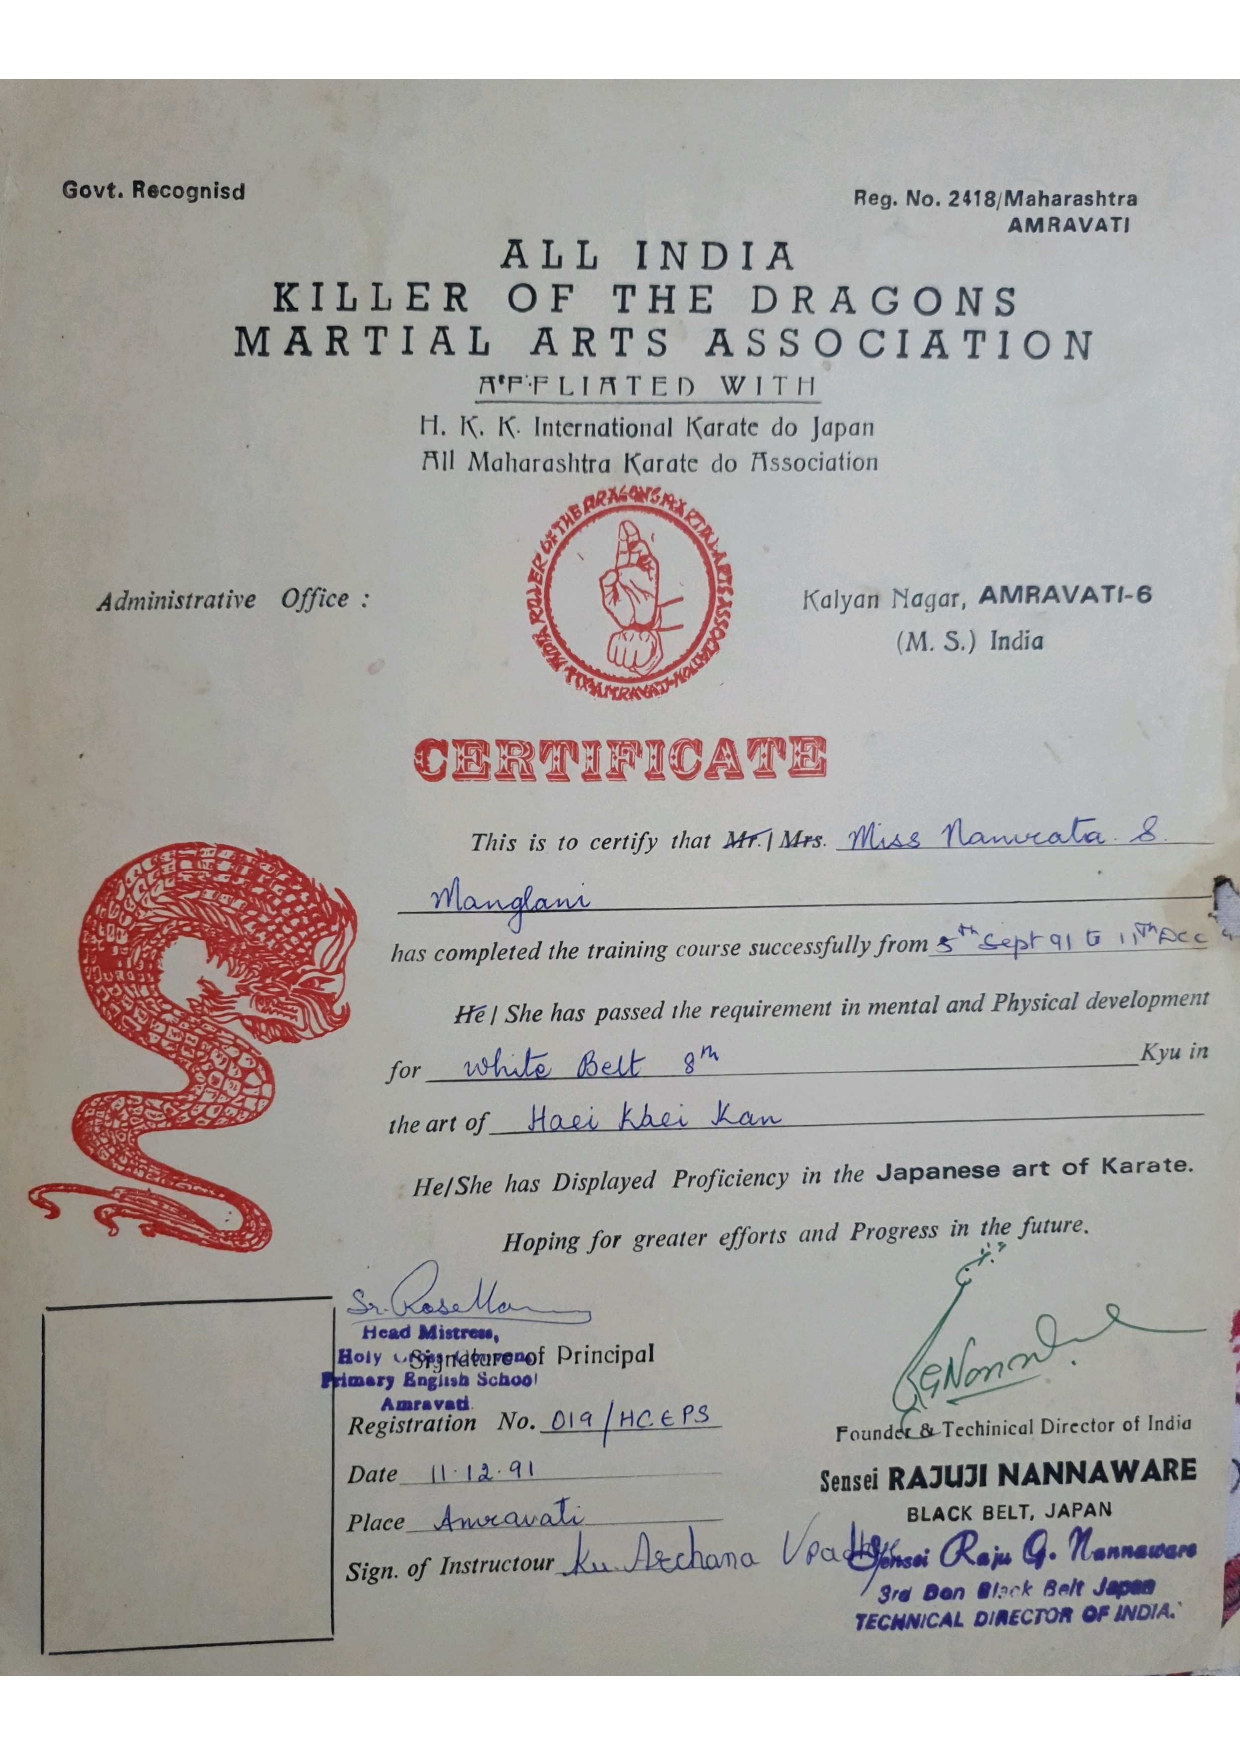 Govt. Recognisd
Reg. No. 2418/Maharashtra
AMRAVATI
ALL INDIA
KILLER OF THE DRAGONS
MARTIAL ARTS ASSOCIATION
AFFLIATED WITH
H. K. K. International Karate do Japan
All Maharashtra Karate do Association
Administrative Office :
Kalyan Nagar, AMRAVATI-6
(M. S.) India
CERTIFICATE
This is to certify that Mr./ Mrs. Miss Namrata. S.
Manglani
has completed the training course successfully from 5th Sept 91 to 11th Dec
He / She has passed the requirement in mental and Physical development
for White Belt 8th Kyu in
the art of Haei Khei Kan
He/She has Displayed Proficiency in the Japanese art of Karate.
Hoping for greater efforts and Progress in the future.
Sr.
Head Mistress,
Signature of Principal
Holy Cross
Primary English School
Amravati.
Registration No. 019/HCEPS
Date 11.12.91
Place Amravati
Sign. of Instructour Ku. Archana
Founder & Techinical Director of India
Sensei RAJUJI NANNAWARE
BLACK BELT, JAPAN
Sensei Raju G. Nannaware
3rd Dan Black Belt Japan
TECHNICAL DIRECTOR OF INDIA.